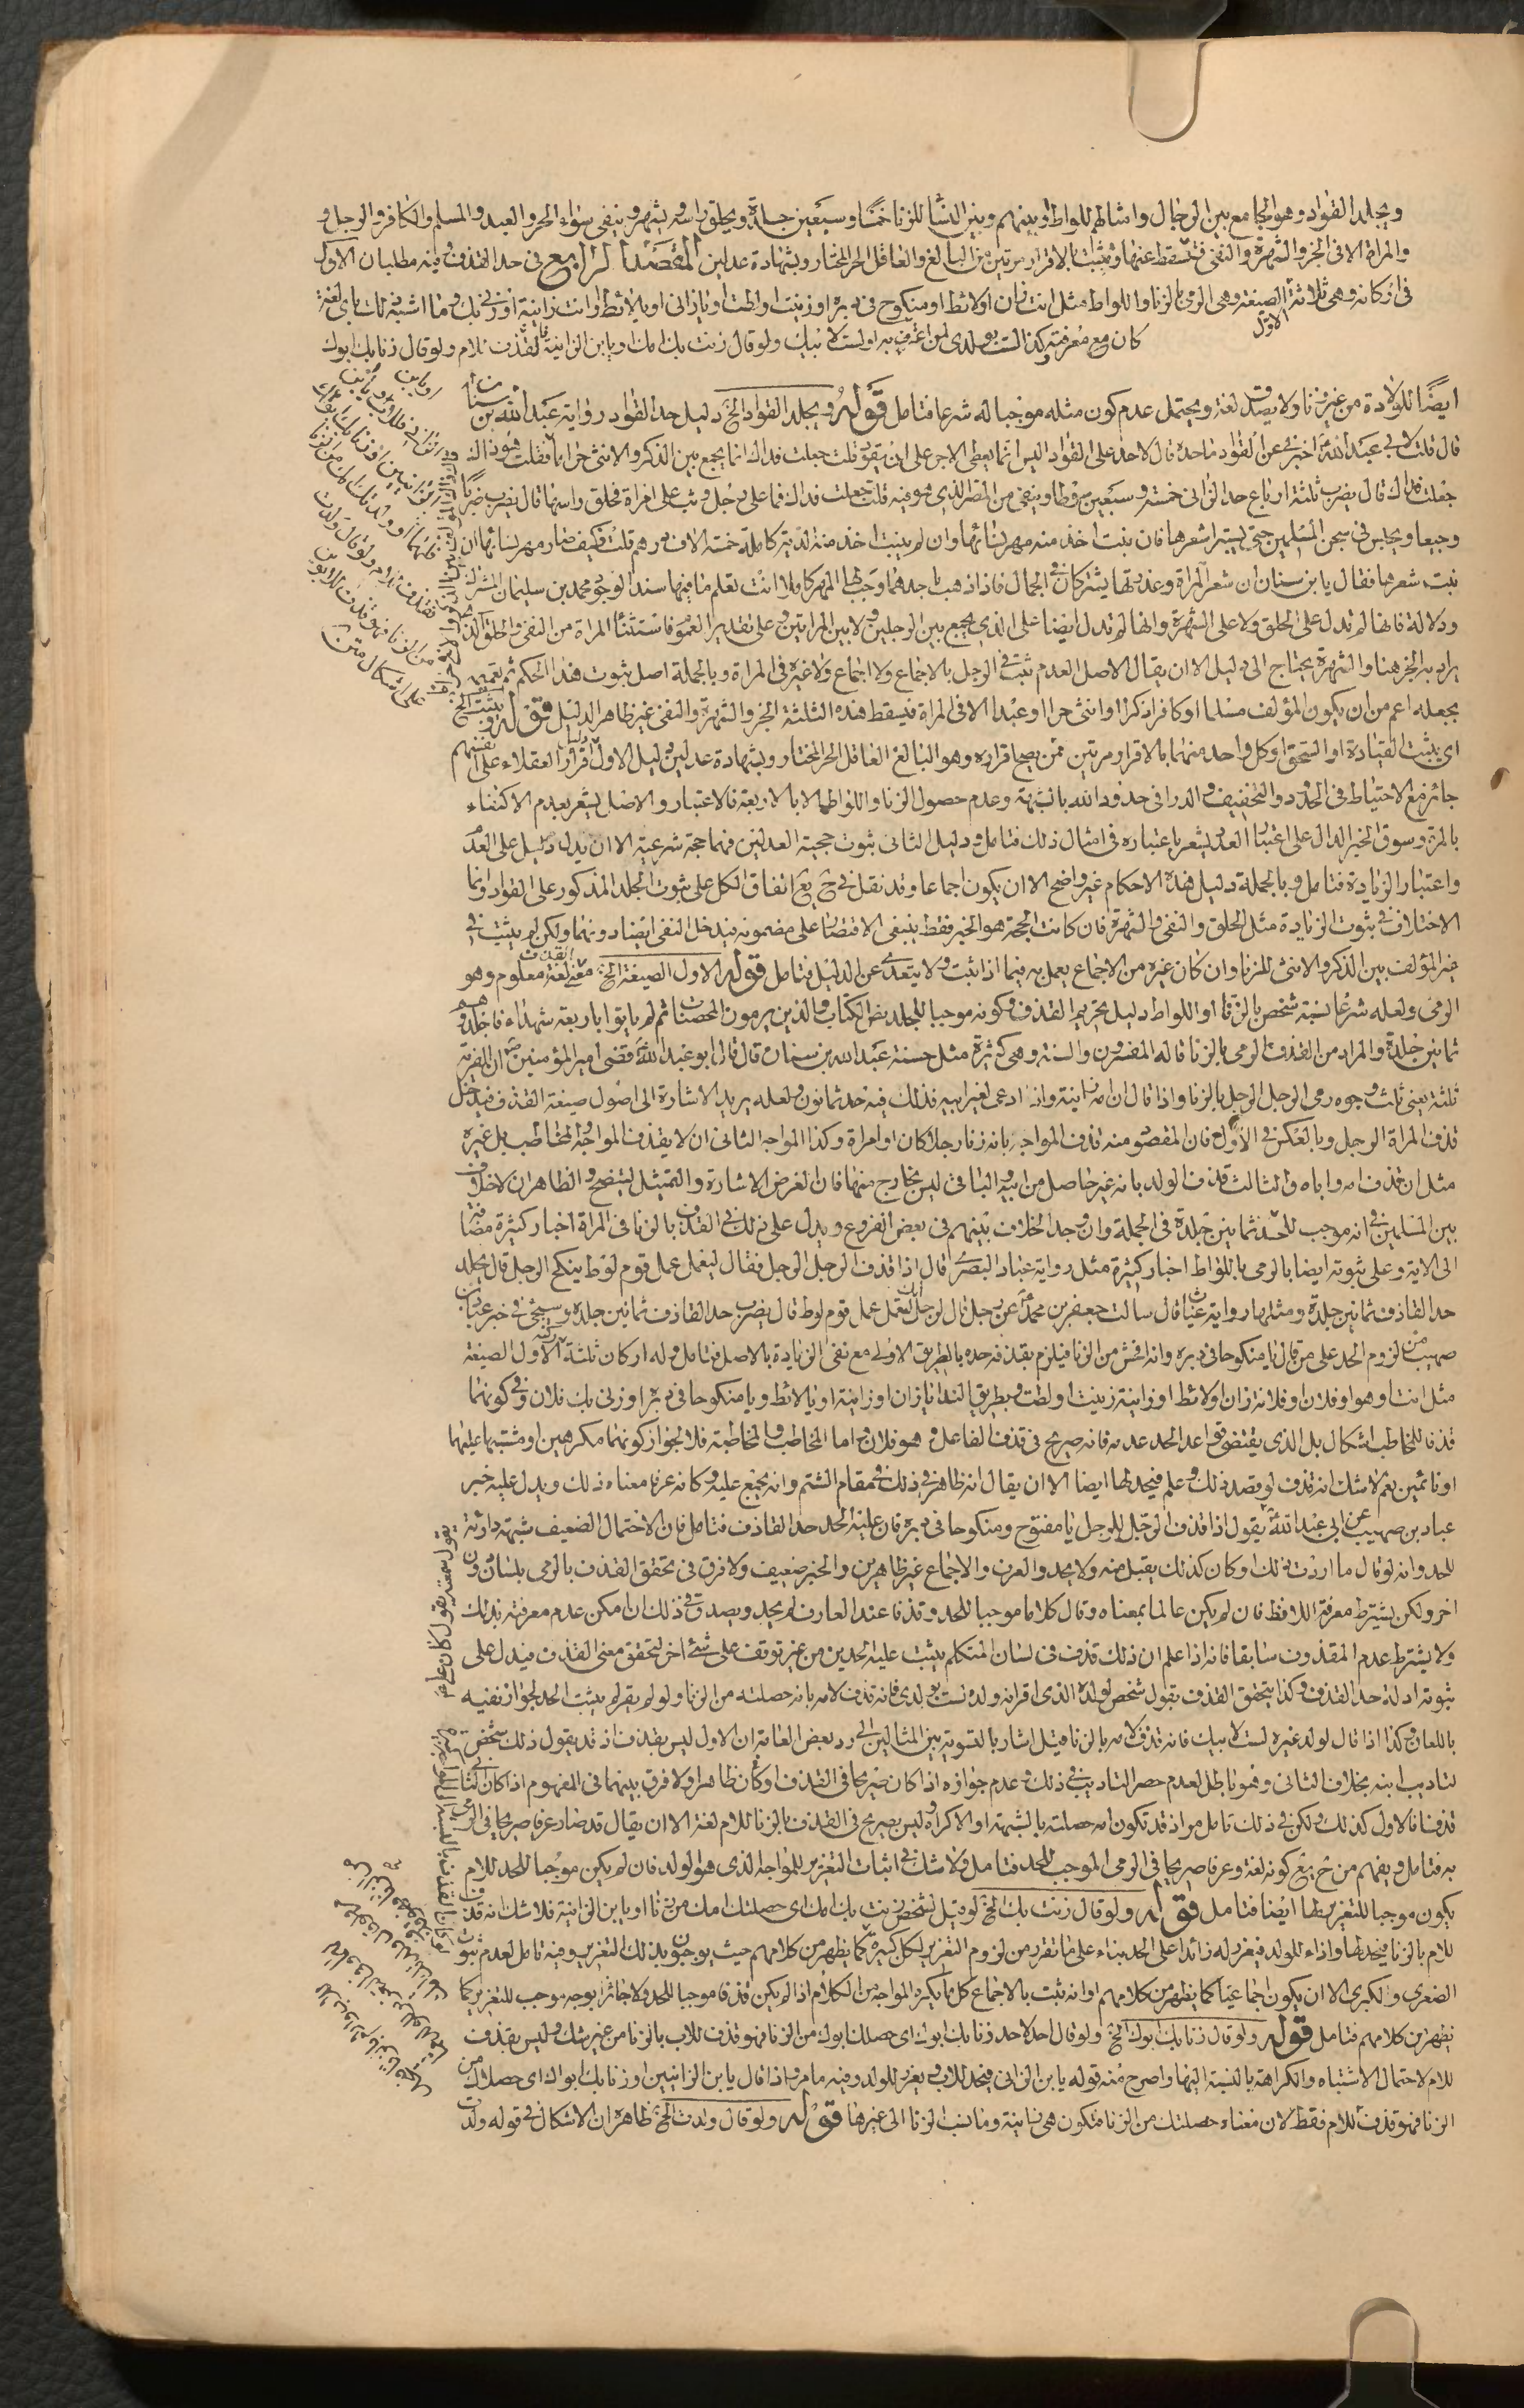 ويجلد القواد وهو الجامع بين الرجال وامثالهم للواط او بينهم وبين النساء للزنا خمسا وسبعين جلدة ويحلق راسه ويشهر وينفى سواء الحر والعبد والمسلم والكافر والرجل و
والمراة الا في الجز والشهرة والنفي فتسقط عنها ويثبت بالاقرار مرتين من البالغ والعاقل الحر المختار وبشهادة عدلين المقصد الرابع في حد القذف وفيه مطلبان الاول
في اركانه وهي ثلاثة الاول الصيغة وهي الرمي بالزنا واللواط مثل انت زان او لائط او منكوح في دبره او زنيت او لطت او يا زاني او يا لائط او انت زانية او زني بك وما اشبه ذلك باي لغة
كان مع معرفته وكذا لست بولدي لمن اعترف به او لست لابيك ولو قال زنت بك امك او يا ابن الزانية فقذف للام ولو قال زنا بك ابوك
ايضا للولادة من غير زنا ولا يصدق لغة ويحتمل عدم كون مثله موجبا له شرعا فتامل قوله ويجلد القواد الخ دليل حد القواد رواية عبد الله بن سنان
قال قلت لابي عبد الله اخبرني عن القواد ما حده قال لا حد على القواد اليس انما يعطى الاجر على ان يقود قلت جعلت فداك انما يجمع بين الذكر والانثى حراما فقلت هو ذاك
جعلت فداك قال يضرب ثلثة ارباع حد الزاني خمسة وسبعين سوطا وينفى من المصر الذي هو فيه قلت جعلت فداك فما على رجل وثب على امراة فحلق راسها قال يضرب ضربا
وجيعا ويحبس في سجن المسلمين حتى يستبرا شعرها فان نبت اخذ منه مهر نسائها وان لم ينبت اخذ منه الدية كاملة خمسة الاف درهم قلت فكيف صار مهر نسائها ان
نبت شعرها فقال يا بن سنان ان شعر المراة وعذرتها يشتركان في الجمال فاذا ذهب باحدهما وجب لها المهر كاملا انت تعلم ما فيها سندا لوجود محمد بن سليمان المشترك
ودلالة فانها لم تدل على الحلق ولا على الشهرة وانها لم تدل ايضا على الذي يجمع بين الرجلين ولا بين المراتين وعلى تقدير العموم فاستثناء المراة من النفي والحلق الذي
يراد به الجز هنا والشهرة يحتاج الى دليل الا ان يقال الاصل العدم ثبت في الرجل بالاجماع ولا اجماع ولا غيره في المراة وبالجملة اصل ثبوت هذا الحكم ثم تعميمه
بجعله اعم من ان يكون المؤلف مسلما او كافرا ذكرا او انثى حرا او عبدا الا في المراة فيسقط هذه الثلثة الجز والشهرة والنفي غير ظاهر الدليل قوله ويثبت الخ
اي يثبت القيادة او استحق او كل واحد منهما بالاقرار مرتين ممن يصح اقراره وهو البالغ العاقل الحر المختار وبشهادة عدلين دليل الاول اقرار العقلاء على انفسهم
جائز مع الاحتياط في الحدود والتخفيف والدراني حدود الله بالشبهة وعدم حصول الزنا واللواط الا بالاربعة فالاعتبار والاصل يشعر بعدم الاكتفاء
بالمرة وسوق الخبر الدال على اعتبار العدد يشعر باعتباره في امثال ذلك فتامل ودليل الثاني ثبوت حجية العدلين فهما حجة شرعية الا ان يدل دليل على العدم
واعتبار الزيادة فتامل وبالجملة دليل هذه الاحكام غير واضح الا ان يكون اجماعا وقد نقل في ح يع اتفاق الكل على ثبوت الجلد المذكور على القواد وانما
الاختلاف في ثبوت الزيادة مثل الحلق والنفي والشهرة فان كانت الحجة هو الخبر فقط ينبغي الاقتصار على مضمونه فيدخل النفي ايضا دونهما ولكن لم يثبت في
خبر المؤلف بين الذكر والانثى للزنا وان كان غيره من الاجماع يعمل به فيما اذا ثبت ولا يتعدى عن الدليل فتامل قوله الاول الصيغة الخ معنى القذف لغة معلوم وهو
الرمي ولعله شرعا نسبة شخص بالزنا او اللواط دليل تحريم القذف وكونه موجبا للجلد نص الكتاب والذين يرمون المحصنات ثم لم ياتوا باربعة شهداء فاجلدوهم
ثمانين جلدة والمراد من القذف الرمي بالزنا قاله المفسرون والسنة وهي كثيرة مثل حسنة عبد الله بن سنان قال قال ابو عبد الله قضى امير المؤمنين ان الفرية
ثلثة يعني ثلث وجوه رمي الرجل الرجل بالزنا واذا قال ان امه زانية واذا ادعى لغير ابيه فذلك فيه حد ثمانون ولعله يريد الاشارة الى اصول صيغة القذف فيدخل
قذف المراة الرجل وبالعكس في الاول فان المقصود منه قذف المواجه بانه زنا رجلا كان او امراة وكذا المواجه الثاني ان لا يقذف المواجه المخاطب بل غيره
مثل ان قذف امه واباه والثالث قذف الولد بانه غير حاصل من ابيه والباقي ليس بخارج منها فان الغرض الاشارة والتمثيل ليتضح والظاهر ان لا خلاف
بين المسلمين في انه موجب للحد ثمانين جلدة في الجملة وان وجد الخلاف بينهم في بعض الفروع ويدل على ذلك في القذف بالزنا في المراة اخبار كثيرة مضافة
الى الاية وعلى ثبوته ايضا بالرمي باللواط اخبار كثيرة مثل رواية عباد البصري قال اذا قذف الرجل الرجل فقال ليعمل عمل قوم لوط ينكح الرجل قال يجلد
حد القاذف ثمانين جلدة ومثلها رواية غياث قال سالت جعفر بن محمد عن رجل قال لرجل انك لتعمل عمل قوم لوط قال يضرب حد القاذف ثمانين جلدة وسيجئ في خبر عباد بن
صهيب من لزوم الحد على من قال يا منكوحا في دبره وانه افحش من الزنا فيلزم بقذفه حده بالطريق الاولى مع نفي الزيادة بالاصل فتامل وله اركان ثلثة الاول الصيغة
مثل انت او هو او فلان او فلانة زان او لائط او زانية زنيت او لطت وبطريق النداء يا زان او زانية او يا لائط ويا منكوحا في دبره او زنى بك فلان وفي كونهما
قذفا للمخاطب اشكال بل الذي يقتضي قواعد الحد عدمه فانه صريح في قذف الفاعل وهو فلان اما المخاطب والمخاطبة فلا لجواز كونهما مكرهين او مشتبها عليهما
او نائمين نعم لا شك انه قذف لو قصد ذلك وعلم فيحد لها ايضا الا ان يقال انه ظاهر في ذلك في مقام الشتم وانه يجتمع عليه وكانه عرفا معناه ذلك ويدل عليه خبر
عباد بن صهيب عن ابي عبد الله يقول اذا قذف الرجل الرجل يا مفتوح ومنكوحا في دبره فان عليه الحد حد القاذف فتامل فان الاحتمال الضعيف شبهة دارئة
للحد وانه لو قال ما اردت ذلك او كان كذلك يقبل منه ولا يحد والعرف والاجماع غير ظاهرين والخبر ضعيف ولا فرق في تحقق القذف بالرمي بلسان دون
اخر ولكن يشترط معرفة اللافظ فان لم يكن عالما بمعناه وقال كلاما موجبا للحد وقذفا عند العارف لم يحد ويصدق في ذلك ان امكن عدم معرفته بذلك
ولا يشترط عدم المقذوف سابقا فانه اذا علم ان ذلك قذف في لسان المتكلم يثبت عليه الحدين من غير توقف على شئ اخر لتحقق معنى القذف فيدل على
ثبوته ادلة حد القذف وكذا يتحقق القذف بقول شخص لولده الذي اقر انه ولده لست بولدي فانه قذف لامه بانه حصلته من الزنا ولو لم يقر لم يثبت الحد لجواز نفيه
باللعان وكذا اذا قال لولد غيره لست لابيك فانه قذف لامه بالزنا قيل اشار بالتسوية بين المثالين الى رد بعض العامة ان الاول ليس بقذف اذ قد يقول ذلك شخص
لتاديب ابنه بخلاف الثاني وهو باطل لعدم حصر التاديب في ذلك وعدم جوازه اذا كان صريحا في القذف او كان ظاهرا ولا فرق بينهما في المفهوم اذا كان الثاني
قذفا فالاول كذلك ولكن في ذلك تامل مر اذ قد تكون امه حصلته بالشبهة او الاكراه وليس بصريح في القذف بالزنا للام لغة الا ان يقال قد صار عرفا صريحا في الرمي
به فتامل ويفهم من ح يع كونه لغة وعرفا صريحا في الرمي الموجب للحد فتامل ولا شك في اثبات التعزير للمواجه الذي هو الولد فان لم يكن موجبا للحد للام
يكون موجبا للتعزير لها ايضا فتامل قوله ولو قال زنت بك الخ لو قيل لشخص زنت بك امك اي حصلتك امك من زنا او يا ابن الزانية فلا شك انه قذف
للام بالزنا فيحد لها واذاء للولد فيعزر له زائدا على الحد بناء على ما تقرر من لزوم التعزير لكل كبيرة كما يظهر من كلامهم حيث يوجبون بذلك التعزير وفيه تامل لعدم ثبوت
الصغرى والكبرى الا ان يكون اجماعيا كما يظهر من كلامهم او انه ثبت بالاجماع كل ما يكره المواجه من الكلام اذا لم يكن قذفا موجبا للحد ولا جائزا بوجه موجب للتعزير كما
يظهر من كلامهم فتامل قوله ولو قال زنا بك ابوك الخ ولو قال احد لاحد زنا بك ابوك اي حصلك ابوك من الزنا فهو قذف للاب بالزنا من غير شك وليس بقذف
للام لاحتمال الاشتباه والكراهة بالنسبة اليها واصرح منه قوله يا بن الزاني فيحد للاب ويعزر للولد وفيه ما مر واذا قال يا بن الزانيين او زنا بك ابواك اي حصلاك من
الزنا فهو قذف للام فقط لان معناه حصلتك من الزنا فتكون هي زانية وما نسب الزنا الى غيرها قوله ولو قال ولدت الخ ظاهره ان الاشكال في قوله ولدت